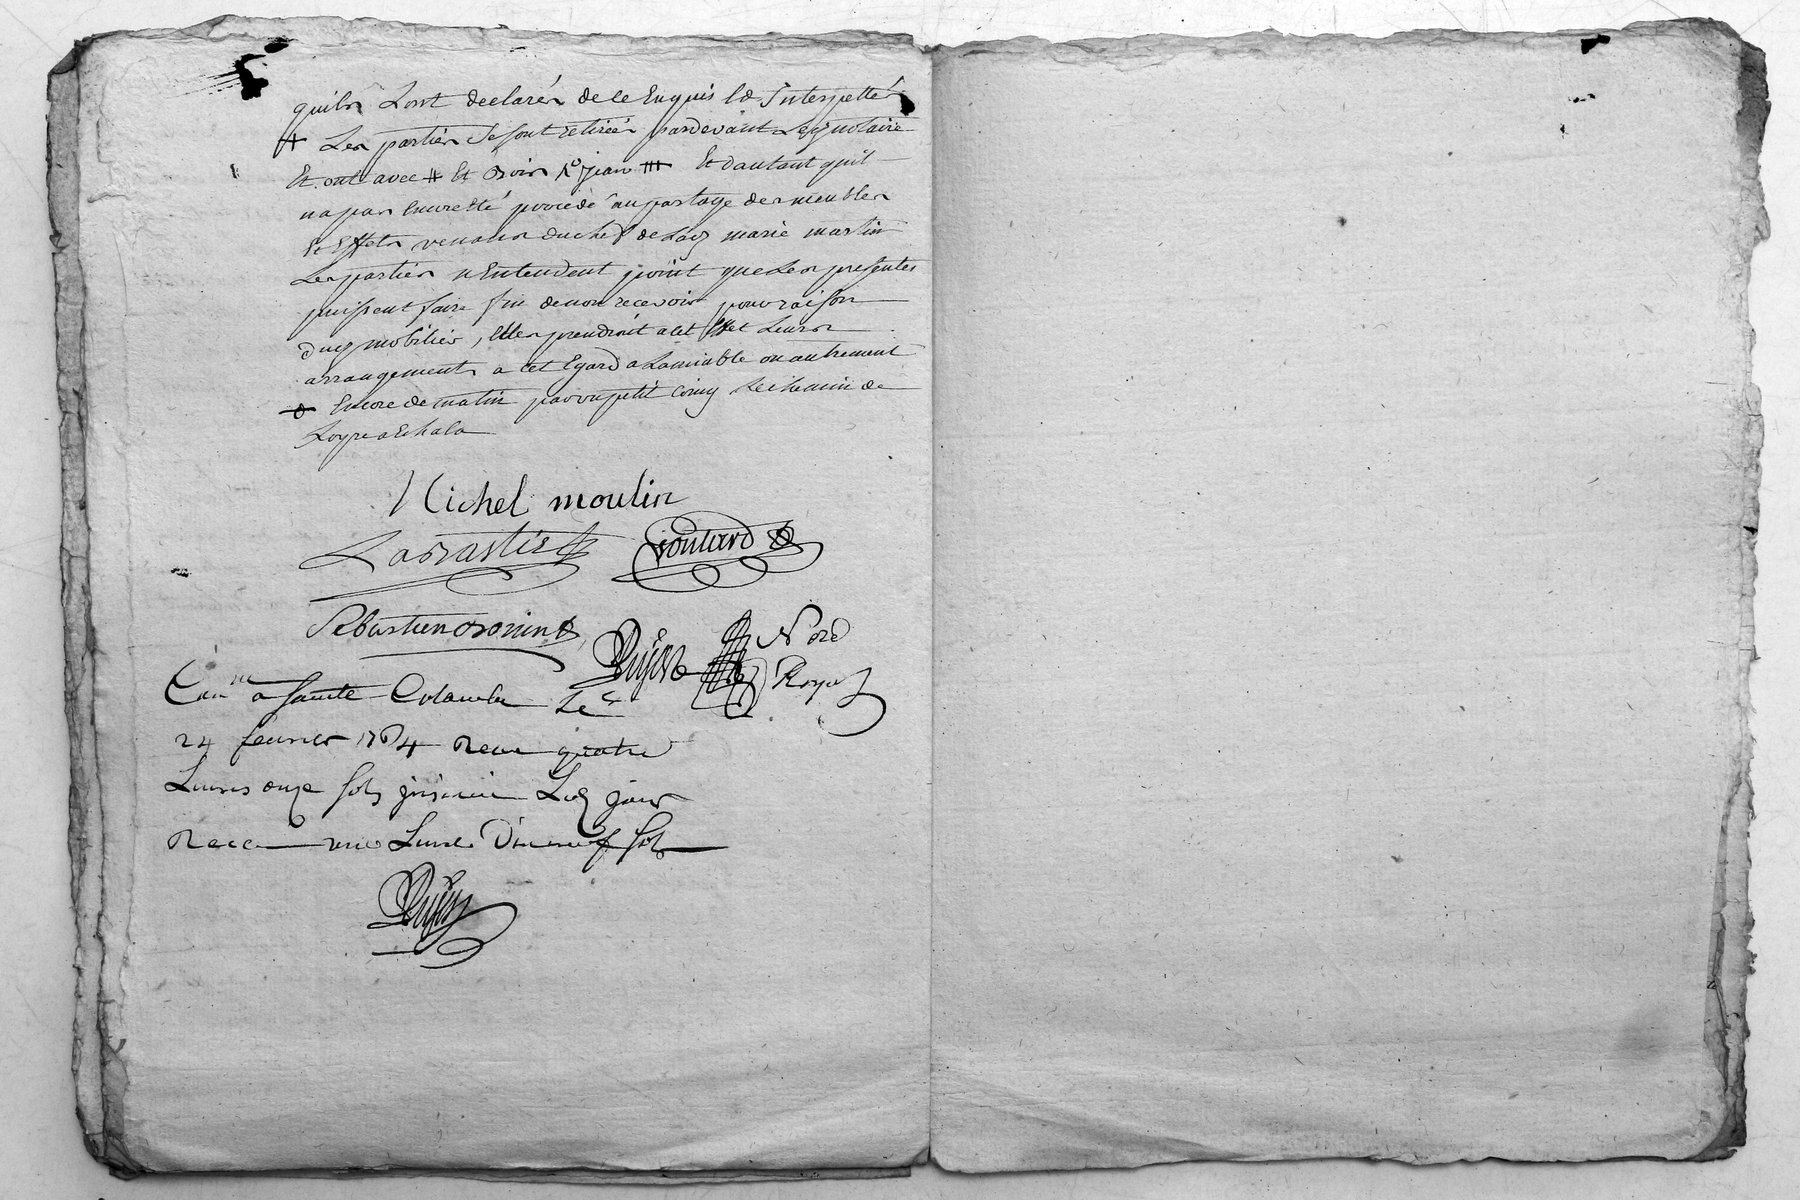 quils Lont declarés de ce Enquis Et Interpellés
Les parties se sont retirées pardevant Led notaire
Et ont avec # Et Trois 1° jean ### Et dautant quil
na pas Encore Eté procédé au partage des meubles
Et Effets venants du chef de Lad marie martin
Les parties nEntendent point que Les presentes
puissent faire fin de non recevoir pour raison
dud mobilier, Elles prendront a cet Effet Leurs
arrangements a cet Egard a Lamiable ou autrement
Encore de matin par un petit Coing Le chemin de
Loyre a Echala
Michel moulin
Labrastier
Goutard
Sebastien bonin
Nore
Royal
Con.lle a sainte Colombe Le
24 fevrier 1764 Recu quatre
Livres onze sols
Recu une Livre Dixneuf sols